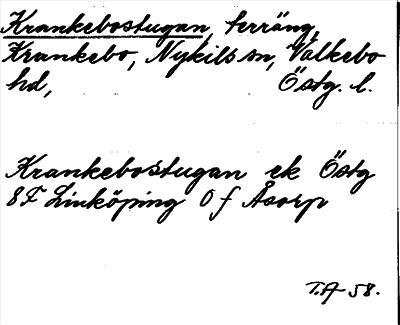 Krankebostugan, terräng,
Krankebo, Nykils sn, Valkebo
hd, Östg. l.
Krankebostugan ek Östg
8F Linköping 0 f Åsorp
T.A 58.